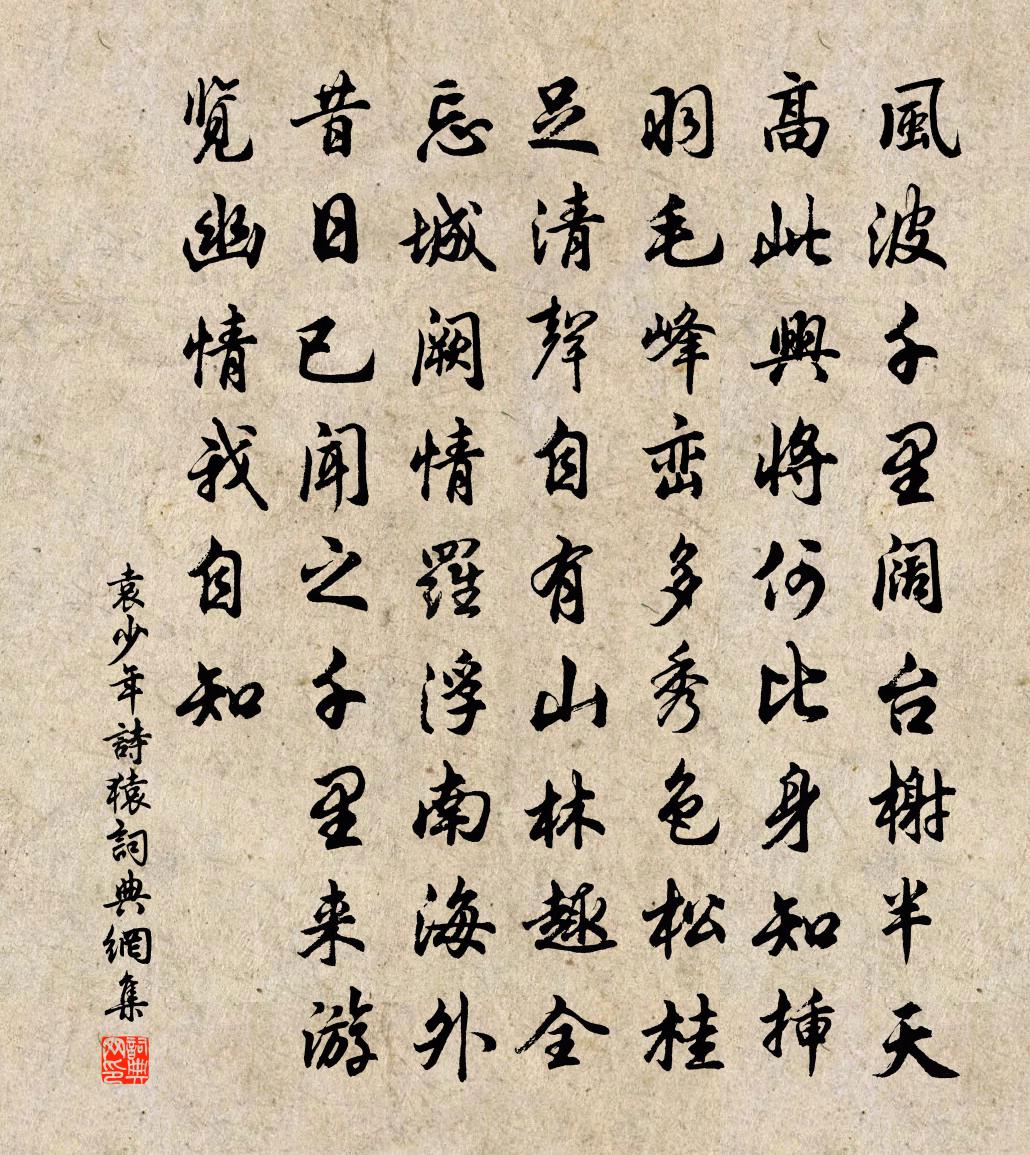 風波千里阔台榭半天
高此興將何比身知插
羽毛峰峦多秀色松桂
足清聲自有山林趣全
忘城阙情羅浮南海外
昔日已闻之千里来游
览幽情我自知
袁少年詩猿詞典網集
詞典网印